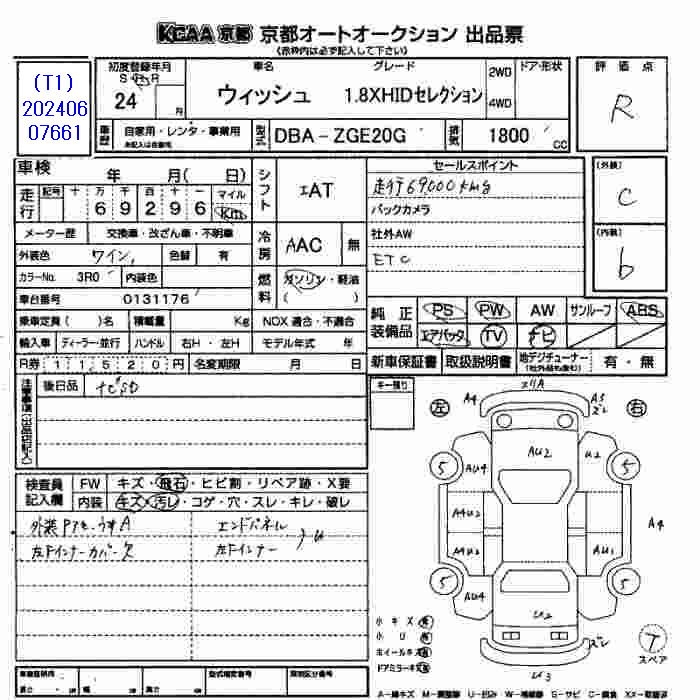 KCAA 京都 京都オートオークション 出品票
(赤枠内は必ず記入して下さい)
(T1)
202406
07661
初度登録年月
S H R
24 月
車名
ウィッシュ
グレード
1.8XHIDセレクション
2WD
4WD
ドア・形状
評価点
R
車歴
自家用・レンタ・事業用
未記入は自家用
型式
DBA-ZGE20G
排気
1800 CC
車検 年 月( 日)
走行 記号 十 万 千 百 十 一 マイル
6 9 2 9 6 Km
シフト
IAT
セールスポイント
走行69,000km台
バックカメラ
社外AW
ETC
(外装)
C
(内装)
b
メーター歴 交換車・改ざん車・不明車
外装色 ワイン 色替 有
カラーNo. 3R0 内装色
車台番号 0131176
冷房
AAC 無
燃料
ガソリン・軽油
( )
乗車定員 ( )名 積載量 Kg NOX 適合・不適合
輸入車 ディーラー・並行 ハンドル 右H・左H モデル年式 年
R券 11520円 名変期限 月 日
純正装備品
PS PW AW サンルーフ ABS
エアバック TV ナビ
新車保証書 取扱説明書 地デジチューナー 有・無
(社外品も含む)
注意事項(出品店記入)
後日品 ナビSD
キー残り
左 右
検査員記入欄
FW キズ・飛石・ヒビ割・リペア跡・X要
内装 キズ・汚レ・コゲ・穴・スレ・キレ・破レ
外装
左Fインナーカバー欠
エンドパネル
左Fインナー
U
A4
AU2
AU4
U2
5
5
A4U2
A4
AU1
5
5
AU4
U2
U3
小キズ 有
小U 有
ホイールキズ 有
ドアミラーキズ 有
スペア
T
車検証専用
長さ
幅
高さ
型式指定番号
類別区分番号